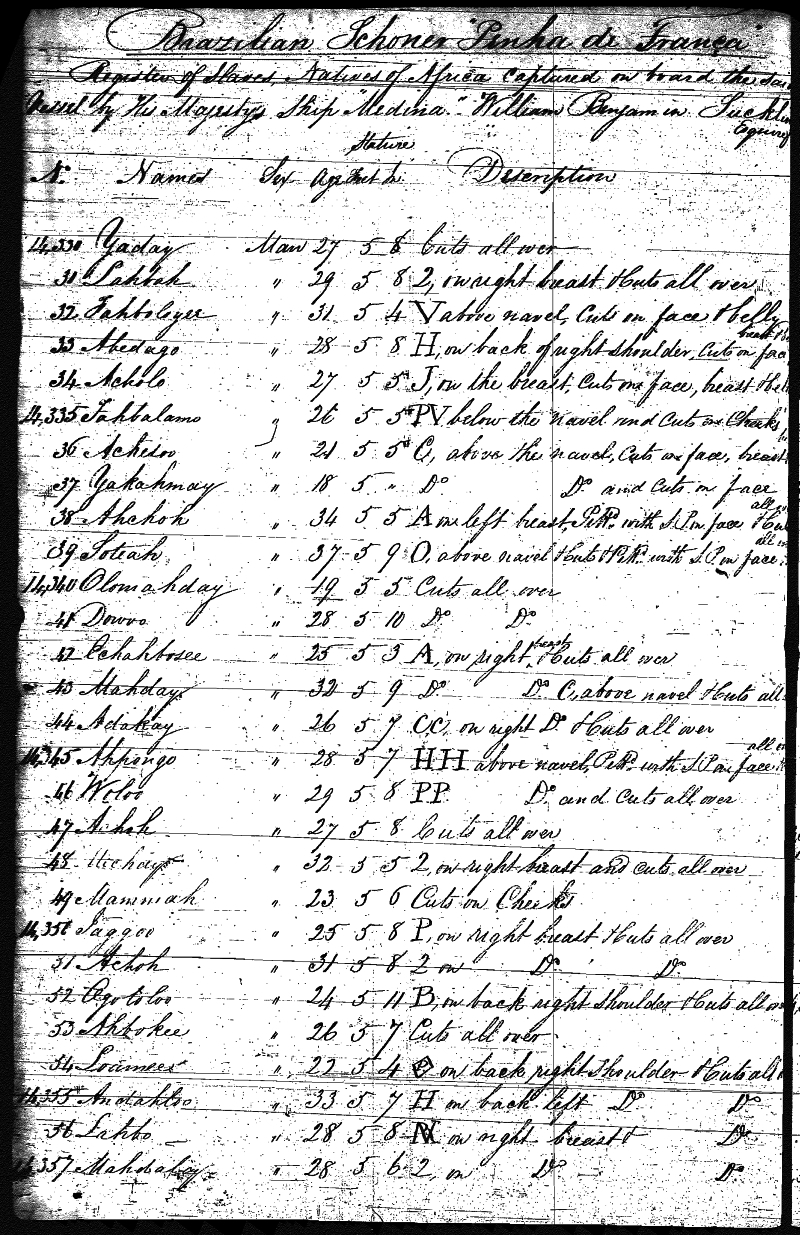 Brazilian Schoner "Pinha de França"
Register of Slaves, Natives of Africa captured on board the said
Vessel by His Majesty's Ship "Medina" William Benjamin Suckling
Esquire
Stature
No. Names Sex Age Feet In Description
14,330 Yaday Man 27 5 8 Cuts all over
31 Lahbah " 29 5 8 2, on right breast & Cuts all over
32 Fahboleyee " 31 5 4 V above navel, Cuts on face & belly
33 Abedago " 28 5 8 H, on back of right shoulder, Cuts on face
34 Acholo " 27 5 5 J, on the breast, Cuts on face, breast &
14,335 Fahbalamo " 26 5 5 PV below the navel and Cuts on Cheeks
36 Achesoo " 21 5 5 C, above the navel, Cuts on face, breast
37 Yakahmay " 18 5 " Do Do and Cuts on face
38 Ahchoh " 34 5 5 A on left breast, with S.P. on face & Cuts all
39 Soteah " 37 5 9 O, above navel & Cuts & with S.P. on face
14,340 Olomahday " 19 5 5 Cuts all over
41 Dowoo " 28 5 10 Do Do
42 Echahbosee " 25 5 3 A, on right breast, & Cuts all over
43 Mahday " 32 5 9 Do Do C, above navel & Cuts all
44 Adakay " 26 5 7 CC, on right Do & Cuts all over
14,345 Ahpongo " 28 5 7 HH above navel, with S.P. on face & all
46 Woloo " 29 5 8 PP Do and Cuts all over
47 Aihoh " 27 5 8 Cuts all over
48 " 32 5 5 2, on right breast and cuts all over
49 Mammah " 23 5 6 Cuts on Cheeks
14,350 Jaggoo " 25 5 8 P, on right breast & Cuts all over
51 Achoh " 31 5 8 2 on Do Do
52 Ogotoloo " 24 5 11 B, on back right shoulder & Cuts all over
53 Ahbokee " 26 5 7 Cuts all over
54 " 22 5 4 on back right shoulder & Cuts all
14,355 Andahloo " 33 5 7 H on back left Do Do
56 Lahbo " 28 5 8 N on right breast & Do
14,357 Mahdabey " 28 5 6 2, on Do Do